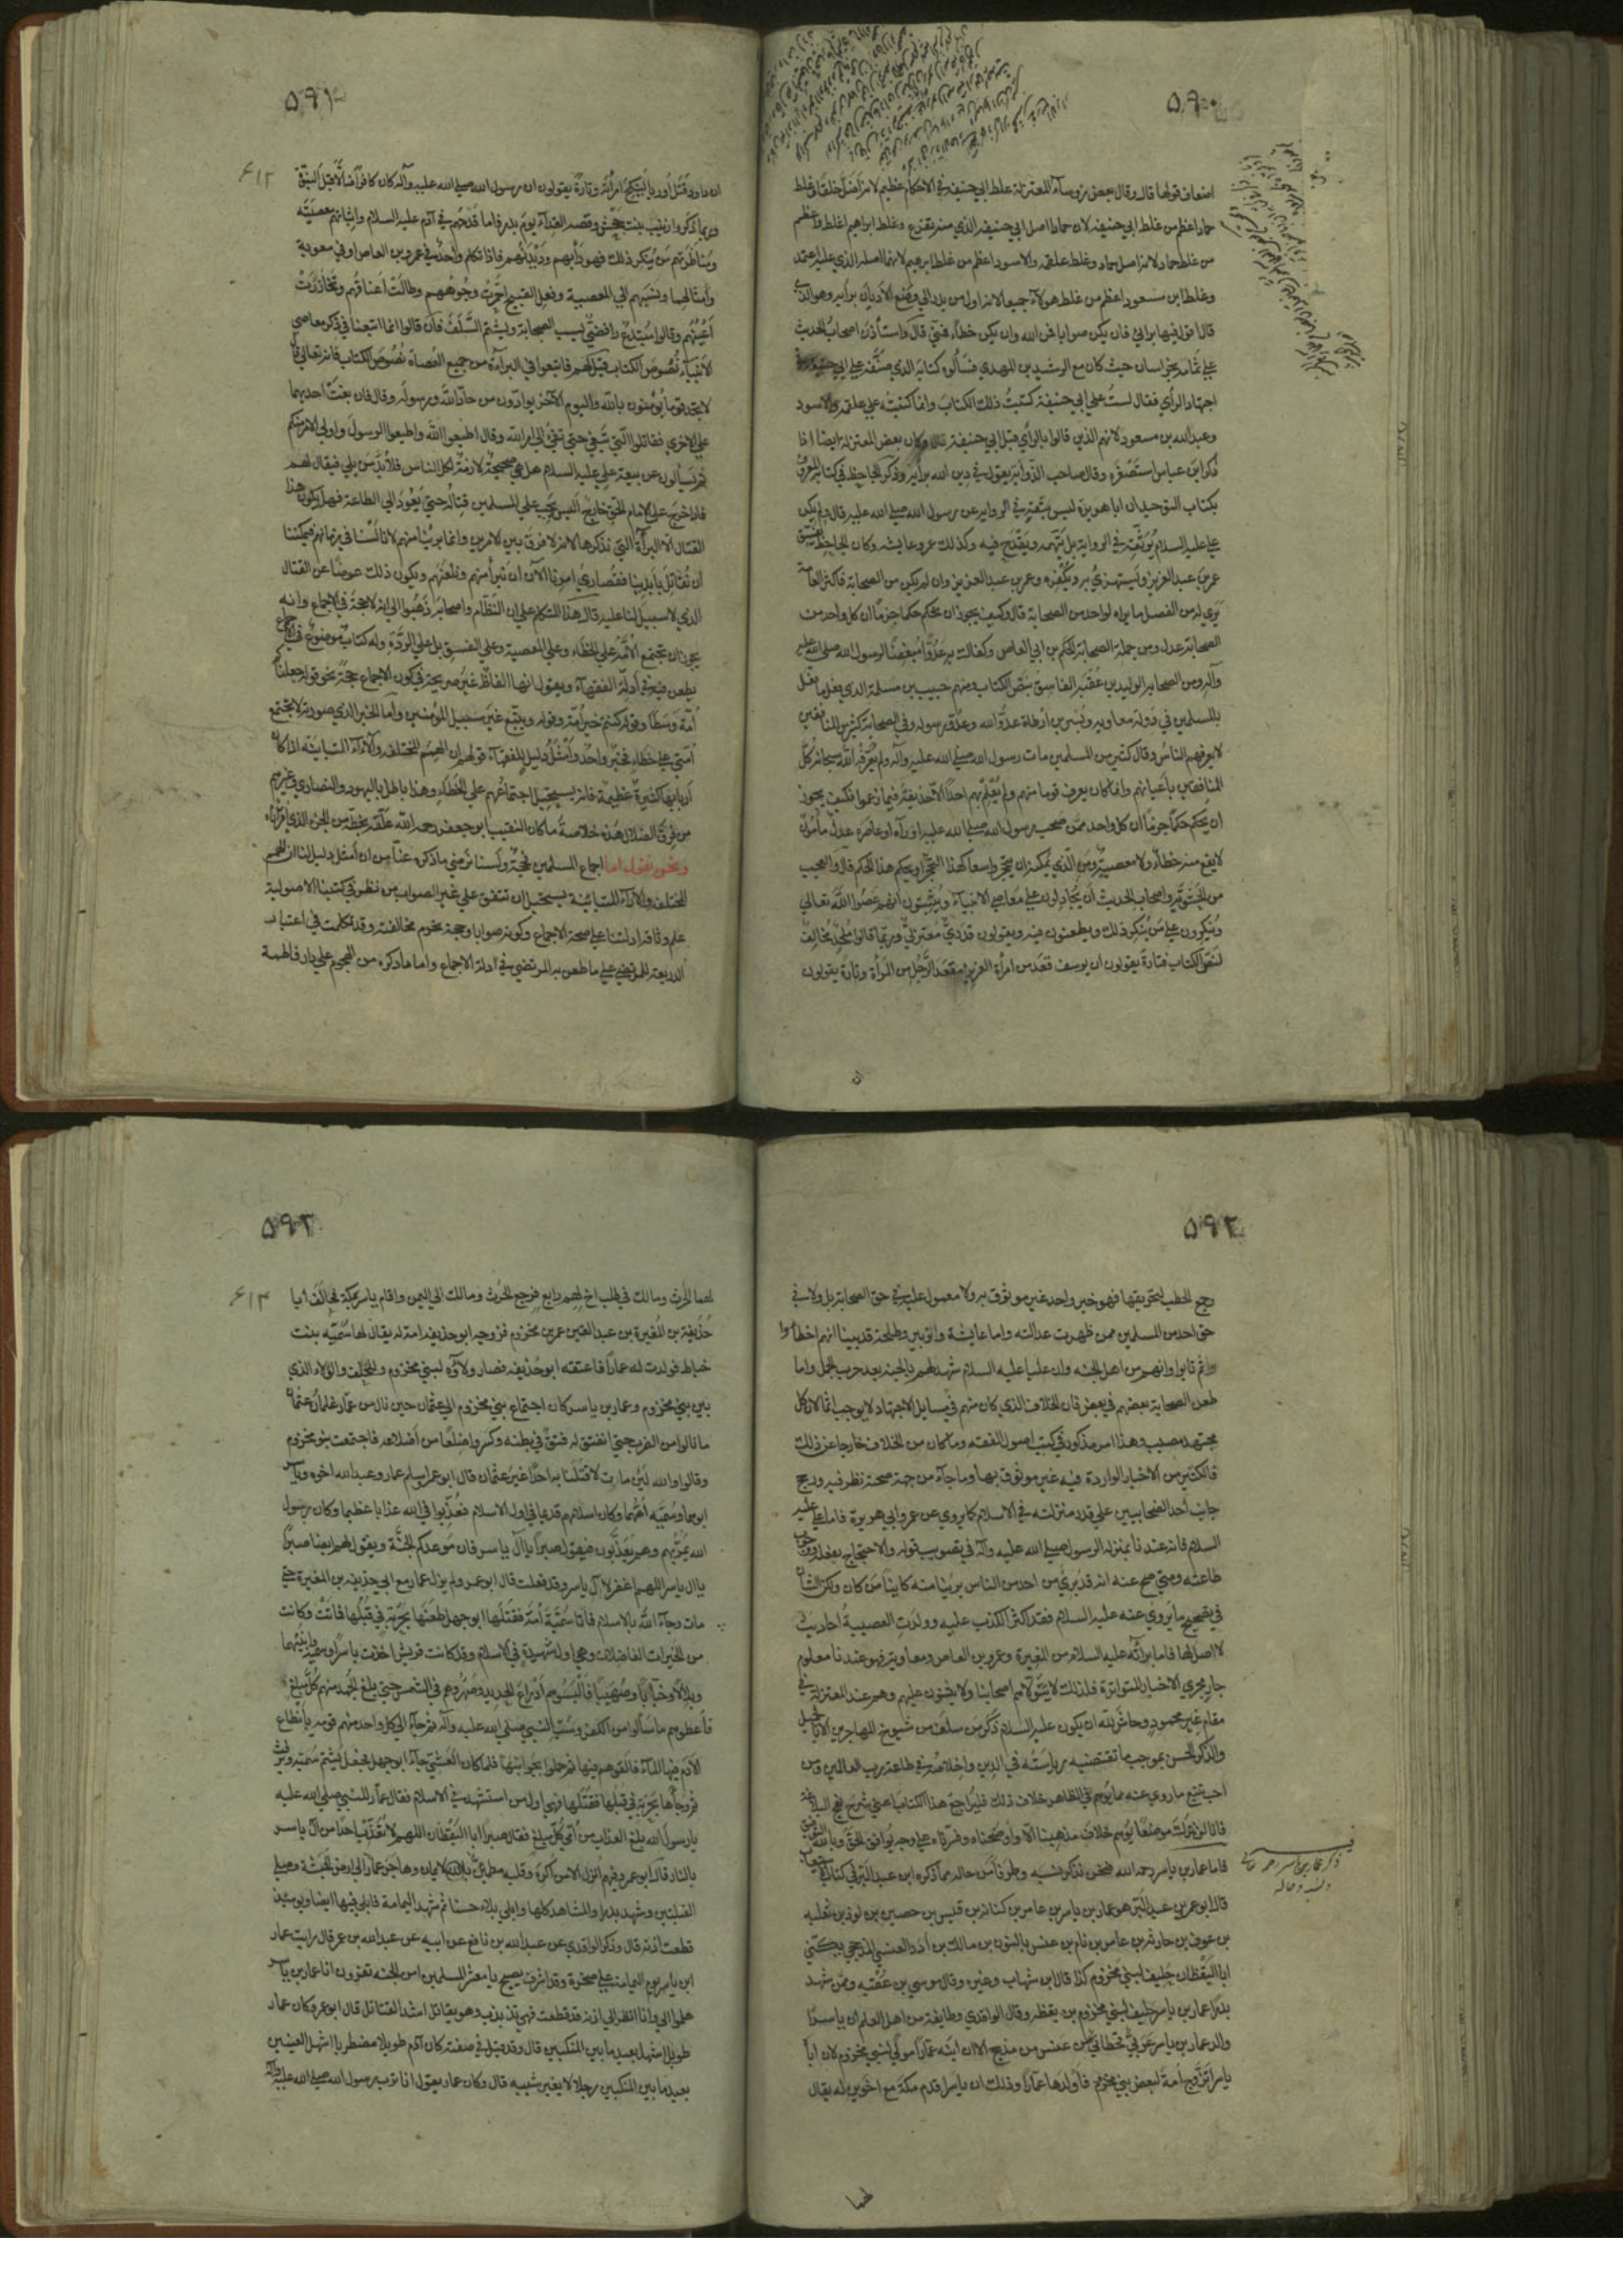 ٥٩٠
اضعاف قولها قال وقال بعض رؤساء المعتزلة غلط ابي حنيفة في الاحكام عظيم لانه اضل خلقا وغلط
حماد اعظم من غلط ابي حنيفة لان حمادا اصل ابي حنيفة الذي منه تفرع وغلط ابراهيم اغلظ واعظم
من غلط حماد لانه اصل حماد وغلط علقمة والاسود اعظم من غلط ابرهيم لانهما اصله الذي عليه اعتمد
وغلط ابن مسعود اعظم من غلط هؤلاء جميعا لانه اول من بدر الي وضع الاديان برأيه وهو الذي
قال اقول فيها برأيي فان يكن صوابا فمن الله وان يكن خطاء فمني قال واستأذن اصحاب الحديث
علي ثمامه بخراسان حيث كان مع الرشيد بن المهدي فسألوه كتابه الذي صنفه علي ابي حنيفة في
اجتهاد الرأي فقال لست علي ابي حنيفة كتبت ذلك الكتاب وانما كتبته علي علقمة والاسود
وعبد الله بن مسعود لانهم الذين قالوا بالرأي قبل ابي حنيفة قال وكان بعض المعتزلة ايضا اذا
ذكر ابن عباس استصغره وقال صاحب الذوابة يقول في دين الله برأيه وذكر الجاحظ في كتابه المعروف
بكتاب التوحيد ان ابا هريرة ليس بثقة في الرواية عن رسول الله صلي الله عليه قال ولم يكن
علي عليه السلام يوثقه في الرواية بل يتهمه ويقدح فيه وكذلك عمر وعايشه وكان الجاحظ يفسق
عمر بن عبد العزيز ويستهزئ به ويكفره وعمر بن عبد العزيز وان لم يكن من الصحابة فاكثر العامة
يري له من الفضل ما يراه لواحد من الصحابة قال وكيف يجوز ان نحكم حكما جزما ان كل واحد من
الصحابة عدل ومن جملة الصحابة الحكم بن ابي العاص وكفاك به عدوا مبغضا لرسول الله صلي الله عليه
وآله ومن الصحابه الوليد بن عقبه الفاسق بنص الكتاب ومنهم حبيب بن مسلمة الذي فعل ما فعل
بالمسلمين في دولة معاويه وبسر بن ارطاة عدو الله وعدو رسوله وفي الصحابة كثير من المنافقين
لا يعرفهم الناس وقال كثير من المسلمين مات رسول الله صلي الله عليه وآله ولم يعرفه الله سبحانه كل
المنافقين باعيانهم وانما كان يعرف قوما منهم ولم يعلم بهم احدا الا حذيفة فيما زعموا فكيف يجوز
ان نحكم حكما جزما ان كل واحد ممن صحب رسول الله صلي الله عليه او رآه او عاصره عدل مأمون
لا يقع منه خطاء ولا معصية ومن الذي يمكنه ان يتحجر واسعا كهذا التحجر او يحكم هذا الحكم قال والعجب
من الحشوية واصحاب الحديث اذ يجادلون علي معاصي الانبياء ويثبتون انهم عصوا الله تعالي
وينكرون علي من ينكر ذلك ويطعنون فيه ويقولون قدري معتزلي وربما قالوا ملحد مخالف
لنص الكتاب فتارة يقولون ان يوسف قعد من امرأة العزيز مقعد الرجل من المرأة وتارة يقولون
ان
٥٩١
٦١٢
ان داود قتل اوريا لينكح امرأته وتارة يقولون ان رسول الله صلي الله عليه وآله كان كافرا ضالا قبل النبوة
وربما ذكروا زينب بنت جحش وقصة الفداء يوم بدر فاما قدحهم في آدم عليه السلام واثباتهم معصيته
ومناظرتهم من ينكر ذلك فهو دأبهم وديدنهم فاذا تكلم واحد في عمرو بن العاص او في معوية
وامثالهما ونسبهم الي المعصية وفعل القبيح احمرت وجوههم وطالت اعناقهم وتخازرت
اعينهم وقالوا مبتدع رافضي يسب الصحابة ويشتم السلف فان قالوا انما اتبعنا في ذكر معاصي
الانبياء نصوص الكتاب قيل لهم فاتبعوا في البراءة من جميع العصاة نصوص الكتاب فانه تعالي قال
لا تجد قوما يؤمنون بالله واليوم الآخر يوادون من حاد الله ورسوله وقال فان بغت احديهما
علي الاخري فقاتلوا التي تبغي حتي تفئ الي امر الله وقال اطيعوا الله واطيعوا الرسول واولي الامر منكم
ثم يسألون عن بيعة علي عليه السلام هل هي صحيحة لازمة لكل الناس فلا بد من بلي فيقال لهم
فاذا خرج علي الامام الحق خارج اليس يجب علي المسلمين قتاله حتي يعود الي الطاعة فهل يكون هذا
القتال الا البراءة التي نذكرها لانه لا فرق بين الامرين وانما برئنا منهم لانا لسنا في زمانهم فيمكننا
ان نقاتل بايدينا فقصاري امرنا الآن ان نبرأ منهم ونلعنهم ويكون ذلك عوضا عن القتال
الذي لا سبيل لنا عليه قال هذا المتكلم علي ان النظام واصحابه ذهبوا الي انه لا حجة في الاجماع وانه
يجوز ان تجتمع الامة علي الخطاء وعلي المعصية وعلي الفسق بل علي الردة وله كتاب موضوع في الاجماع
يطعن فيه في ادلة الفقهاء ويقول انها الفاظ غير صريحة في كون الاجماع حجة نحو قوله جعلناكم
امة وسطا وقوله كنتم خير امة وقوله ويتبع غير سبيل المؤمنين واما الخبر الذي صورته لا تجتمع
امتي علي خطاء فخبر واحد وامثل دليل للفقهاء قولهم ان الهمم المختلفة والآراء المتباينة اذا كان
اربابها كثيرة عظيمة فانه يستحيل اجتماعهم علي الخطاء وهذا باطل باليهود والنصاري وغيرهم
من فرق الضلال هذه خلاصة ما كان النقيب ابو جعفر رحمه الله علقه بخطه من الجزء الذي اقرأناه
ونحن نقول اما اجماع المسلمين فحجة ولسنا نرتضي ما ذكره عنا من ان امثل دليل لنا ان الهمم
المختلفة والآراء المتباينة يستحيل ان تتفق علي غير الصواب ومن نظر في كتبنا الاصولية
علم وثاقة ادلتنا علي صحة الاجماع وكونه صوابا وحجة تحرم مخالفته وقد تكلمت في اعتبار
الذريعة للمرتضي علي ما طعن به المرتضي في ادلة الاجماع واما ما ذكره من الهجوم علي دار فاطمة
٥٩٢
وجمع الحطب لتحريقها فهو خبر واحد غير موثوق به ولا معمول عليه في حق الصحابة بل ولا في
حق احد من المسلمين ممن ظهرت عدالته واما عايشة والزبير وطلحة فمذهبنا انهم اخطأوا
ثم تابوا وانهم من اهل الجنة وان عليا عليه السلام شهد لهم بالجنة بعد حرب الجمل واما
طعن الصحابة بعضهم في بعض فان الخلاف الذي كان منهم في مسايل الاجتهاد لا يوجب اثما لان كل
مجتهد مصيب وهذا امر مذكور في كتب اصول الفقه وما كان من الخلاف خارجا عن ذلك
فالكثير من الاخبار الواردة فيه غير موثوق بها وما جاء من جهة صحة نظر فيه ورجح
جانب احد الصحابيين علي قدر منزلته في الاسلام كما يروي عن عمر وابي هريرة فاما علي عليه
السلام فانه عندنا بمنزلة الرسول صلي الله عليه وآله في تصويب قوله والاحتجاج بفعله ووجوب
طاعته ومتي صح عنه انه قد برئ من احد من الناس برئنا منه كاينا من كان ولكن الشان
في تصحيح ما يروي عنه عليه السلام فقد اكثر الكذب عليه وولدت العصبية احاديث
لا اصل لها فاما براءته عليه السلام من المغيرة وعمرو بن العاص ومعاوية فهو عندنا معلوم
جار مجري الاخبار المتواترة فلذلك لا يتولاهم اصحابنا ولا يثنون عليهم وهم عند المعتزلة في
مقام غير محمود وحاش لله ان يكون عليه السلام ذكر من سلف من شيوخ المهاجرين الا بالجميل
والذكر الحسن بموجب ما تقتضيه رياسته في الدين واخلاصه في طاعة رب العالمين ومن
احب تتبع ما روي عنه مما يوهم في الظاهر خلاف ذلك فليراجع هذا الكتاب اعني شرح نهج البلاغة
فانا لم نترك موضعا يوهم خلاف مذهبنا الا واوضحناه وفسرناه علي وجه يوافق الحق وبالله التوفيق
فاما عمار بن ياسر رحمه الله فنحن نذكر نسبه وطرفا من حاله مما ذكره ابن عبد البر في كتاب الاستيعاب
ذكر عمار بن ياسر رحمه الله
ونسبه وحاله
قال ابو عمر بن عبد البر هو عمار بن ياسر بن عامر بن كنانة بن قيس بن حصين بن لوذ بن ثعلبه
بن عوف بن حارثه بن عامر بن نام بن عنس بالنون بن مالك بن ادد العنسي المذحجي يكني
ابا اليقظان حليف لبني مخزوم كذا قال ابن شهاب وغيره وقال موسي بن عقبه وممن شهد
بدرا عمار بن ياسر حليف لبني مخزوم بن يقظه وقال الواقدي وطايفة من اهل العلم ان ياسرا
والد عمار بن ياسر عربي قحطاني من عنس من مذحج الا ان ابنه عمارا مولي لبني مخزوم لان اباه
ياسرا تزوج امة لبعض بني مخزوم فاولدها عمارا وذلك ان ياسرا قدم مكة مع اخوين له يقال
لهما
٥٩٣
٦١٣
لهما الحرث ومالك في طلب اخ لهم رابع فرجع الحرث ومالك الي اليمن واقام ياسر بمكة فحالف ابا
حذيفة بن المغيرة بن عبد الله بن عمر بن مخزوم فزوجه ابو حذيفه امة له يقال لها سميه بنت
خياط فولدت له عمارا فاعتقه ابو حذيفه فصار ولاؤه لبني مخزوم وللحلف والولاء الذي
بين بني مخزوم وعمار بن ياسر كان اجتماع بني مخزوم الي عثمان حين نال من عمار غلمان عثمان
ما نالوا من الضرب حتي انفتق له فتق في بطنه وكسروا ضلعا من اضلاعه فاجتمعت بنو مخزوم
وقالوا والله لئن مات لا قتلنا به احدا غير عثمان قال ابو عمر اسلم عمار وعبد الله اخوه وياسر
ابوهما وسميه امهما وكان اسلامهم قديما في اول الاسلام فعذبوا في الله عذابا عظيما وكان رسول
الله يمر بهم وهم يعذبون فيقول صبرا يا آل ياسر فان موعدكم الجنة ويقول لهم ايضا صبرا
يا ال ياسر اللهم اغفر لآل ياسر وقد فعلت قال ابو عمر ولم يزل عمار مع ابي حذيفه بن المغيرة حتي
مات وجاء الله بالاسلام فاما سمية امه فقتلها ابو جهل طعنها بحربة في قبلها فماتت وكانت
من الخيرات الفاضلات وهي اول شهيدة في الاسلام وقد كانت قريش اخذت ياسرا وسمية وابنيهما
وبلالا وخبابا وصهيبا فالبسوهم ادراع الحديد وصهروهم في الشمس حتي بلغ الجهد منهم كل مبلغ
فاعطوهم ما سألوا من الكفر وسب النبي صلي الله عليه وآله ثم جاء الي كل واحد منهم قومه بانطاع
الادم فيها الماء فالقوهم فيها ثم حملوا بجوانبها فلما كان العشي جاء ابو جهل فجعل يشتم سميه ويرفث
ثم وجأها بحربة في قبلها فقتلها فهي اول من استشهد في الاسلام فقال عمار للنبي صلي الله عليه
يا رسول الله بلغ العذاب من امي كل مبلغ فقال صبرا ابا اليقظان اللهم لا تعذب احدا من آل ياسر
بالنار قال ابو عمر وفيهم انزل الا من اكره وقلبه مطمئن بالايمان وهاجر عمار الي ارض الحبشة وصلي
القبلتين وشهد بدرا والمشاهد كلها وابلي بلاء حسنا ثم شهد اليمامة فابلي فيها ايضا ويومئذ
قطعت اذنه قال وذكر الواقدي عن عبد الله بن نافع عن ابيه عن عبد الله بن عمر قال رايت عمار
ابن ياسر يوم اليمامة علي صخرة وقد اشرف يصيح يا معشر المسلمين امن الجنه تفرون انا عمار بن ياسر
هلموا الي وانا انظر الي اذنه قد قطعت فهي تذبذب وهو يقاتل اشد القتال قال ابو عمر وكان عمار
طويلا اشهل بعيد ما بين المنكبين قال وقد قيل في صفته كان آدم طويلا مضطربا اشهل العينين
بعيد ما بين المنكبين رجلا لا يغير شيبه قال وكان عمار يقول انا ترب رسول الله صلي الله عليه وآله